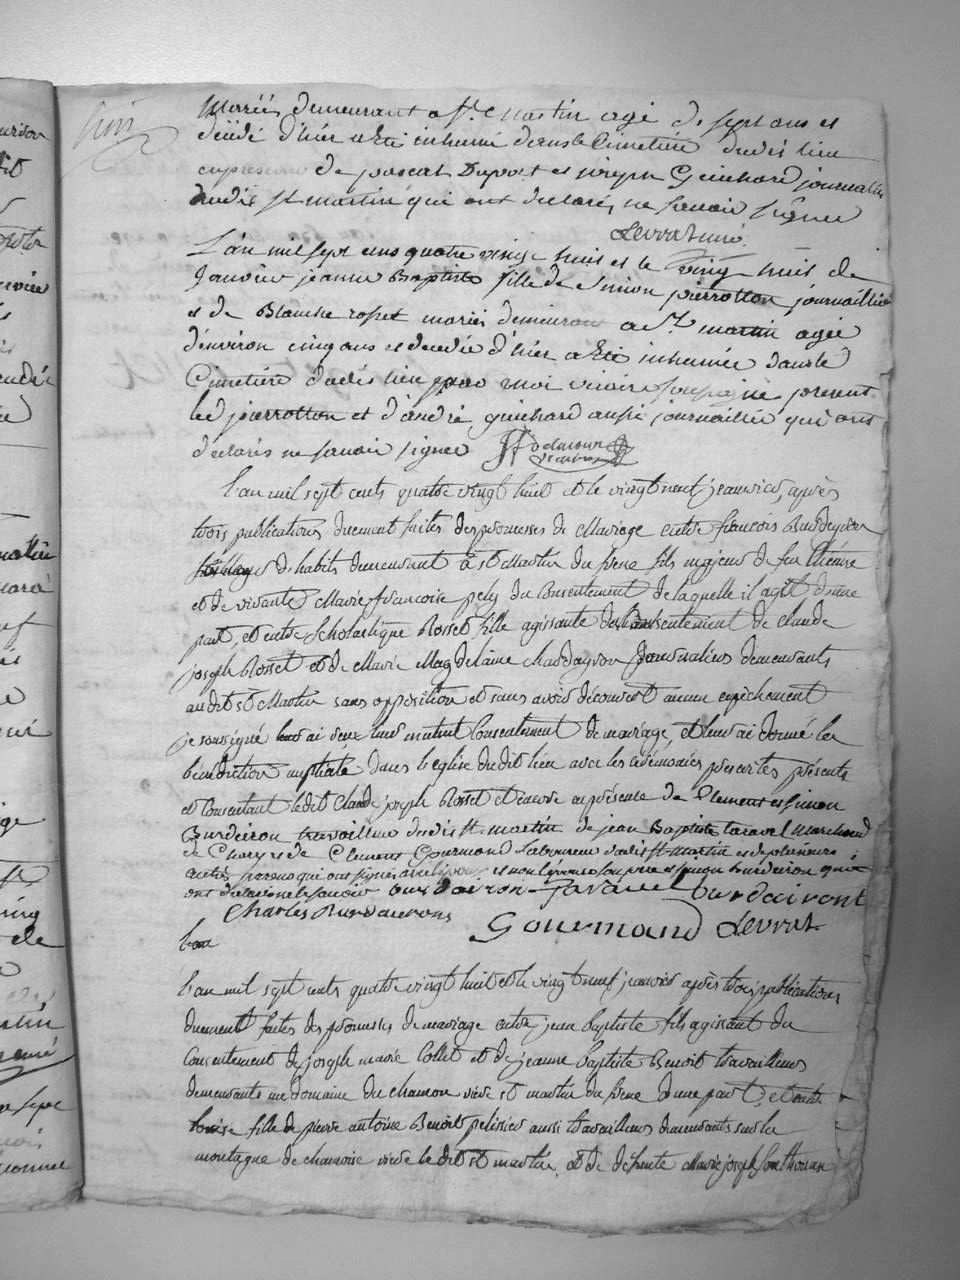 huit
mariés demeurant a St. Martin agé de sept ans et
décédé d'hier a Eté inhumé dans le Cimetiére dudit lieu
en presence de pascal Dupont et joseph Guichard journalier
dudit st martin qui ont declarés ne savoir signer
Levrat curé
L'an mil sept cens quatre vingt huit et le vingt huit de
Janvier jeanne Baptiste fille de Simon pierrotton journaillier
et de Blanche rosset mariés demeurant a St martin agée
d'environ cinq ans et decedée d'hier a Eté inhumée dans le
Cimetiére dudit lieu par moi vicaire soussigné present
led pierrotton et d'andré guichard aussi journaillier qui ont
declarés ne savoir signer
L'an mil sept cents quatre vingt huit et le vingt neuf janvier, après
trois publications duement faites des promesses de Mariage entre françois Burdeyron
d'habits demeurant à st Martin du frene fils majeur de feu
et de vivante Marie françoise pely du Consentement de laquelle il agit d'une
part, et entre Scholastique Rosset fille agissante du Consentement de claude
joseph Rosset et de Marie Magdelaine chardayron journaliers demeurants
audit st Martin sans opposition et sans avoir découvert aucun empêchement
je soussigné ai reçu leur mutuel Consentement de mariage, et leur ai donné la
bénédiction nuptiale dans l'eglise du dit lieu avec les cérémonies prescrites présents
et Consentant ledit Claude joseph Rosset et encore en présence de Clement et Simon
Burdeiron travailleur dudit St. martin de jean Baptiste taravel Marchand
de Charix de Clement Gourmand Laboureur dudit St Martin et de plusieurs
autres parens qui ont signés et non l'épouse son pere et
ont declaré ne le savoir burdairon taravel burdairont
Charles Burdairons
Gourmand Levrat
L'an
L'an mil sept cents quatre vingt huit et le vingt neuf janvier après trois publications
duement faites des promesses de mariage entre jean baptiste fils agissant du
Consentement de joseph marie Collet et de jeanne baptiste Benoit travailleurs
demeurants au domaine du chamoise st martin du frene d'une part, et entre
louise fille de pierre antoine Benoit pelissier aussi travailleurs demeurants sur la
montagne de chamoise le dit st martin, et de défunte Marie joseph